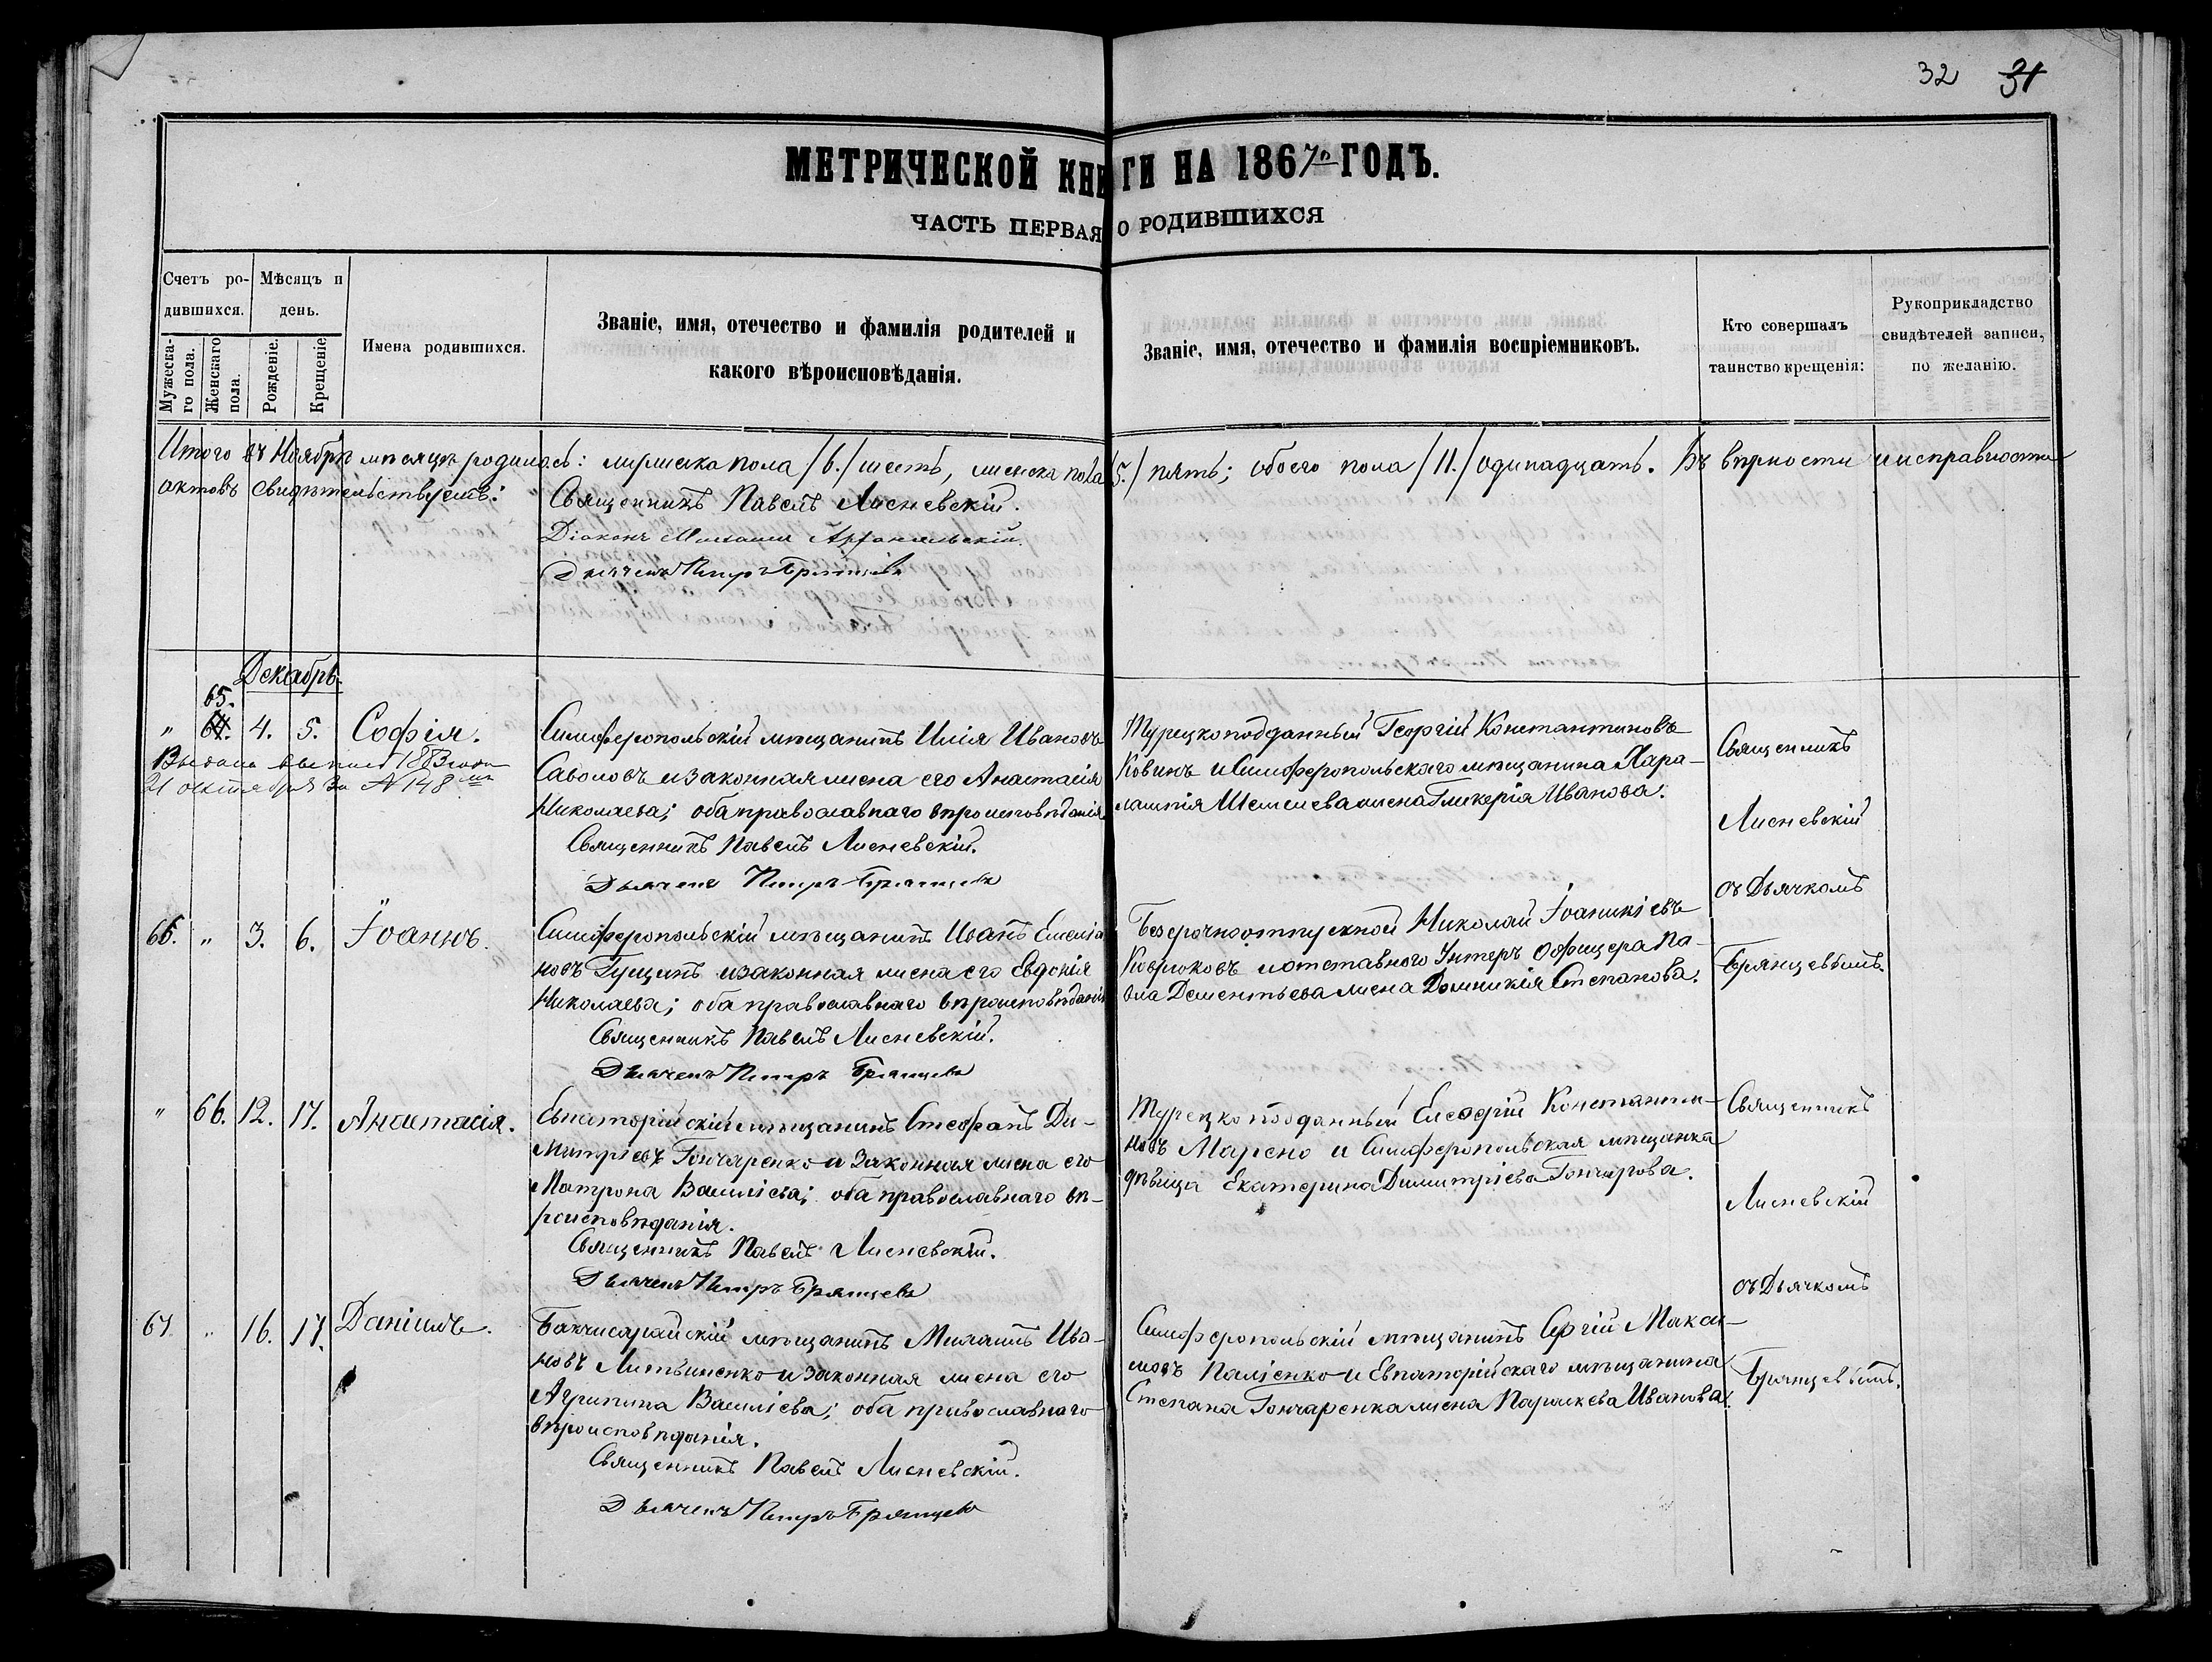 32 31
МЕТРИЧЕСКОЙ КНИГИ НА 1867й ГОДЪ.
ЧАСТЬ ПЕРВАЯ О РОДИВШИХСЯ
Счетъ родившихся.
Мѣсяцъ и день.
Мужескаго пола.
Женскаго пола.
Рожденіе.
Крещеніе
Имена родившихся.
Званіе, имя, отечество и фамилія родителей и
какого вѣроисповѣданія.
Званіе, имя, отечество и фамилія воспріемниковъ.
Кто совершалъ
таинство крещенія:
Рукоприкладство
свидѣтелей записи,
по желанію.
Итого въ Ноябрѣ мѣсяцѣ родилось: мужеска пола /6./ шесть, женска пола /5./ пять; обоего пола /11./ одинадцать. Въ вѣрности и исправности
актовъ свидѣтельствуемъ:
Священникъ Павелъ Лисневскій.
Діаконъ Архангельскій.
Дьячекъ Петръ Брянцевъ
Декабрь.
65.
" 64. 4. 5. Софія.
Выдана выпись 1883 года
21 октября за № 148
Симферопольскій мѣщанинъ Илія Ивановъ
Саволовъ и законная жена его Анастасія
Николаева; оба православнаго вѣроисповѣданія
Священникъ Павелъ Лисневскій.
Дьячекъ Петръ Брянцевъ
Турецкоподданный Георгій Константиновъ
Ковинъ и Симферопольскаго мѣщанина Хара-
лампія жена Гликерія Иванова.
Священникъ
Лисневскій
съ Дьячкомъ
Брянцевымъ.
66. " 3. 6. Іоаннъ.
Симферопольскій мѣщанинъ Иванъ Емелья
новъ Гущинъ и законная жена его Евдокія
Николаева; оба православнаго вѣроисповѣданія
Священникъ Павелъ Лисневскій.
Дьячекъ Петръ Брянцевъ
Безсрочноотпускной Николай Іоаникіевъ
Коврюковъ и отставного Унтеръ Офицера Па-
вла Дементьева жена Домникія Степанова.
" 66. 12. 17. Анастасія.
Евпаторійскій мѣщанинъ Стефанъ Ди-
митріевъ Гончаренко и законная жена его
Матрона Василіева; оба православнаго вѣ-
роисповѣданія.
Священникъ Павелъ Лисневскій.
Дьячекъ Петръ Брянцевъ
Турецкоподданный Константи-
новъ Марено и Симферопольская мѣщанка
дѣвица Екатерина Димитріева Гончарова.
Священникъ
Лисневскій
съ Дьячкомъ
Брянцевымъ.
67. " 16. 17. Даніилъ.
Бахчисарайскій мѣщанинъ Михаилъ Ива-
новъ Литвиненко и законная жена его
Агрипина Василіева; оба православнаго
вѣроисповѣданія.
Священникъ Павелъ Лисневскій.
Дьячекъ Петръ Брянцевъ
Симферопольскій мѣщанинъ Сергій Мака-
Паліенко и Евпаторійскаго мѣщанина
Степана Гончаренка жена Параскева Иванова.